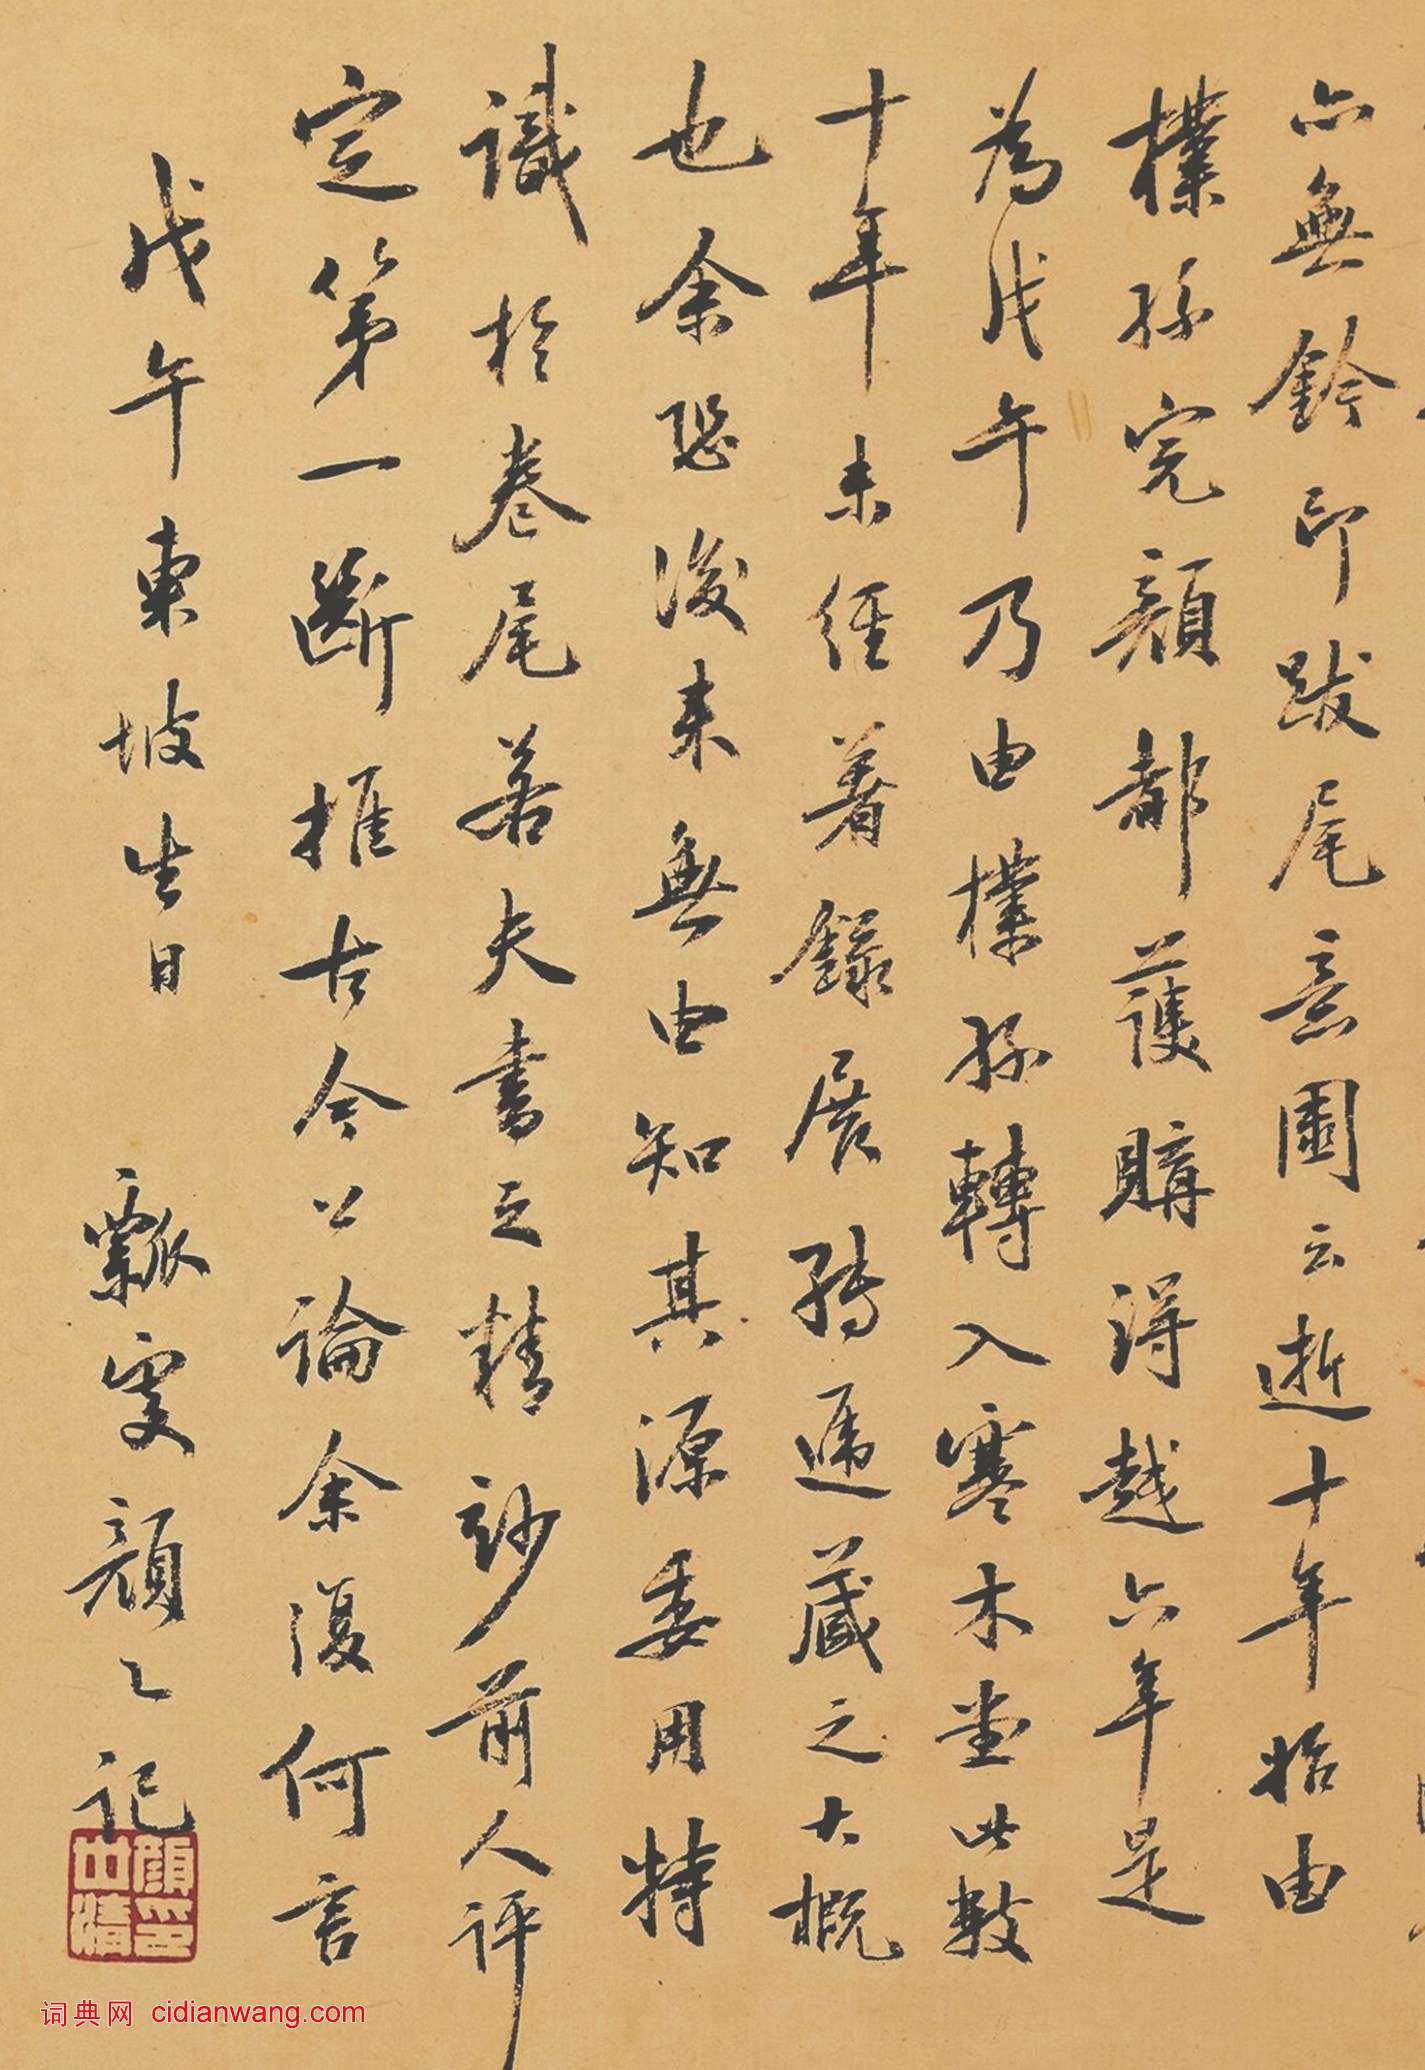 亦無鈐印跋尾意園云逝十年始由
樸孫完顏都護購得越六年是
為戊午乃由樸孫轉入寒木堂此數
十年未經著錄展轉遞藏之大概
也余恐後來無由知其源委用特
識於卷尾若夫書之精妙前人評
定第一斷推古今公論余復何言
戊午東坡生日 瓢叟顏〻記
顏世清印
词典网 cidianwang.com